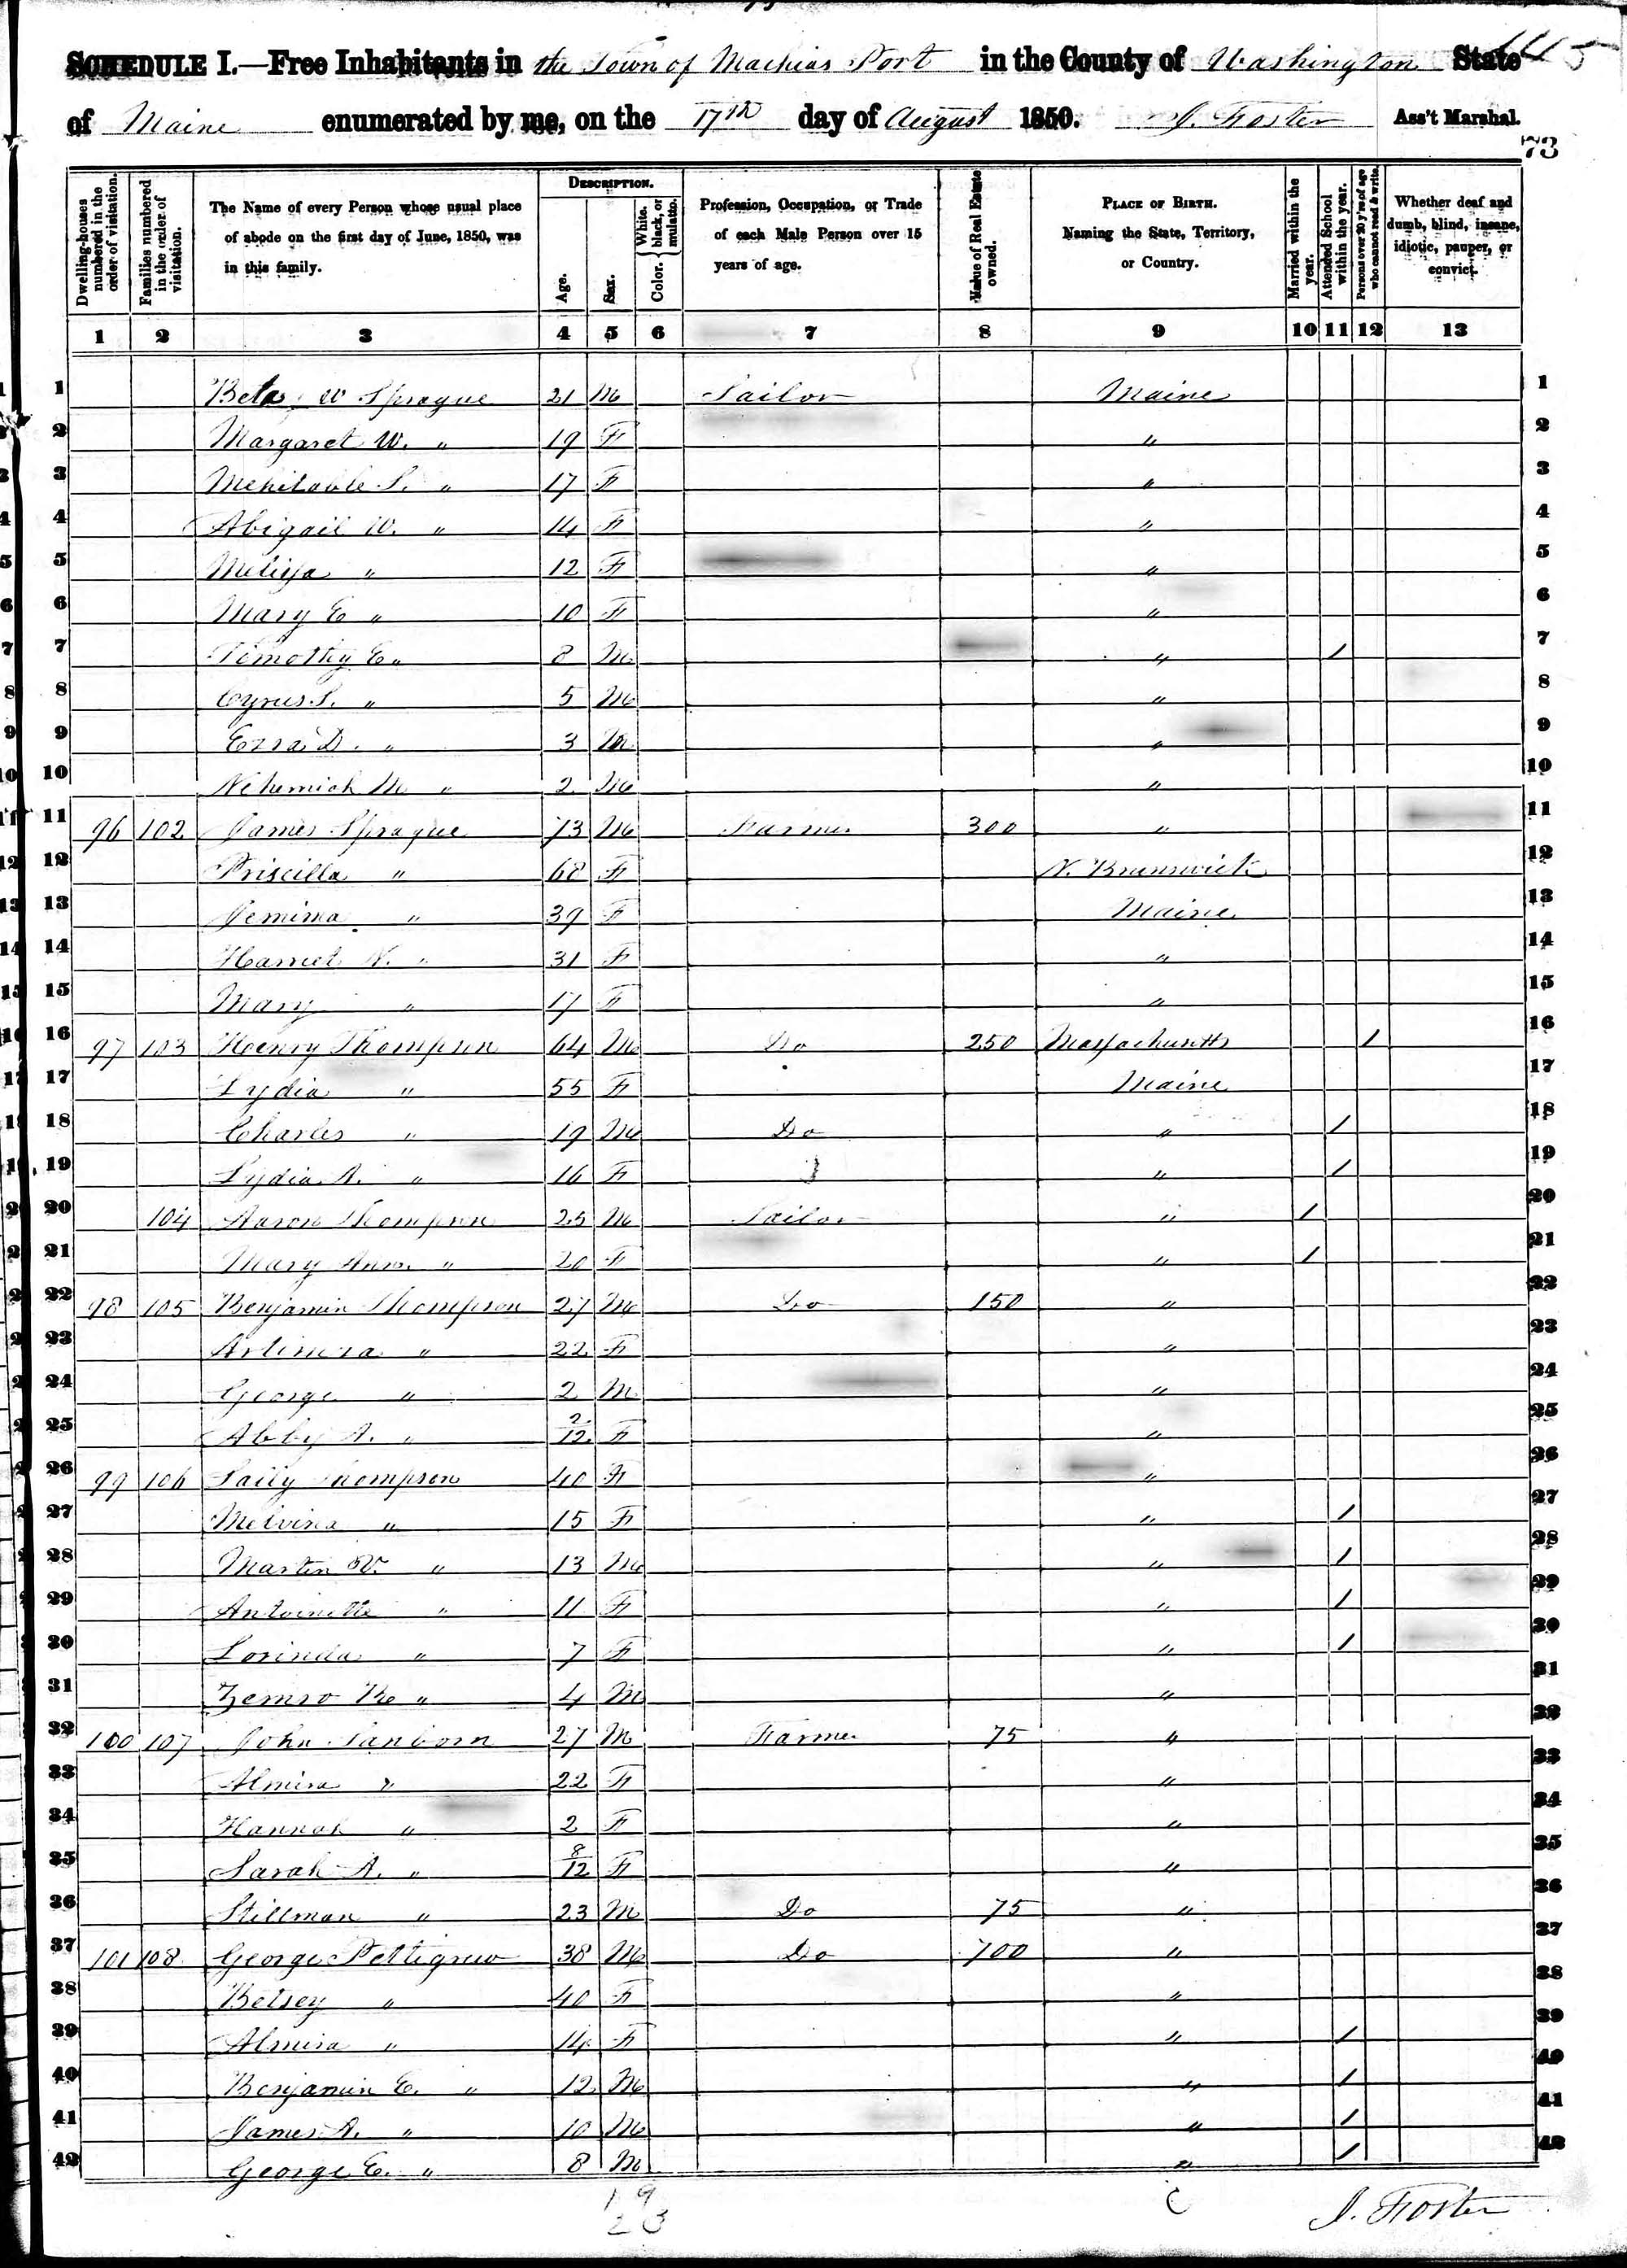 145
SCHEDULE I.—Free Inhabitants in the Town of Machias Port in the County of Washington State
of Maine enumerated by me, on the 17th day of August 1850. J. Foster Ass't Marshal.
73
Dwelling-houses numbered in the order of visitation.
Families numbered in the order of visitation.
The Name of every Person whose usual place of abode on the first day of June, 1850, was in this family.
DESCRIPTION.
Age.
Sex.
Color. White, black, or mulatto.
Profession, Occupation, or Trade of each Male Person over 15 years of age.
Value of Real Estate owned.
PLACE OF BIRTH. Naming the State, Territory, or Country.
Married within the year.
Attended School within the year.
Persons over 20 y'rs of age who cannot read & write.
Whether deaf and dumb, blind, insane, idiotic, pauper, or convict.
1 2 3 4 5 6 7 8 9 10 11 12 13
1 W Sprague 21 M Sailor Maine 1
2 Margaret W. " 19 F " 2
3 Mehitable S. " 17 F " 3
4 Abigail W. " 14 F " 4
5 Melissa " 12 F " 5
6 Mary E " 10 F " 6
7 Timothy E " 8 M " / 7
8 Cyrus S. " 5 M " 8
9 Ezra D. " 3 M " 9
10 Nehemiah M " 2 M " 10
11 96 102 James Sprague 73 M Farmer 300 " 11
12 Priscilla " 68 F N. Brunswick 12
13 Jemima " 39 F Maine 13
14 Harriet N. " 31 F " 14
15 Mary " 17 F " 15
16 97 103 Henry Thompson 64 M Do 250 Massachusetts / 16
17 Lydia " 55 F Maine 17
18 Charles " 19 M Do " / 18
19 Lydia A. " 16 F " / 19
20 104 Aaron Thompson 25 M Sailor " / 20
21 Mary Ann " 20 F " / 21
22 98 105 Benjamin Thompson 27 M Do 150 " 22
23 " 22 F " 23
24 George " 2 M " 24
25 Abby A. " 2/12 F " 25
26 99 106 Sally Thompson 40 F " 26
27 Melvina " 15 F " / 27
28 Martin V. " 13 M " / 28
29 Antoinette " 11 F " / 29
30 Lorinda " 7 F " / 30
31 " 4 M " 31
32 100 107 John Sanborn 27 M Farmer 75 " 32
33 Almira " 22 F " 33
34 Hannah " 2 F " 34
35 Sarah A. " 8/12 F " 35
36 Stillman " 23 M Do 75 " 36
37 101 108 George Pettigrew 38 M Do 700 " 37
38 Betsey " 40 F " 38
39 Almira " 14 F " / 39
40 Benjamin E. " 12 M " / 40
41 James A. " 10 M " / 41
42 George E. " 8 M " / 42
19
23
J. Foster